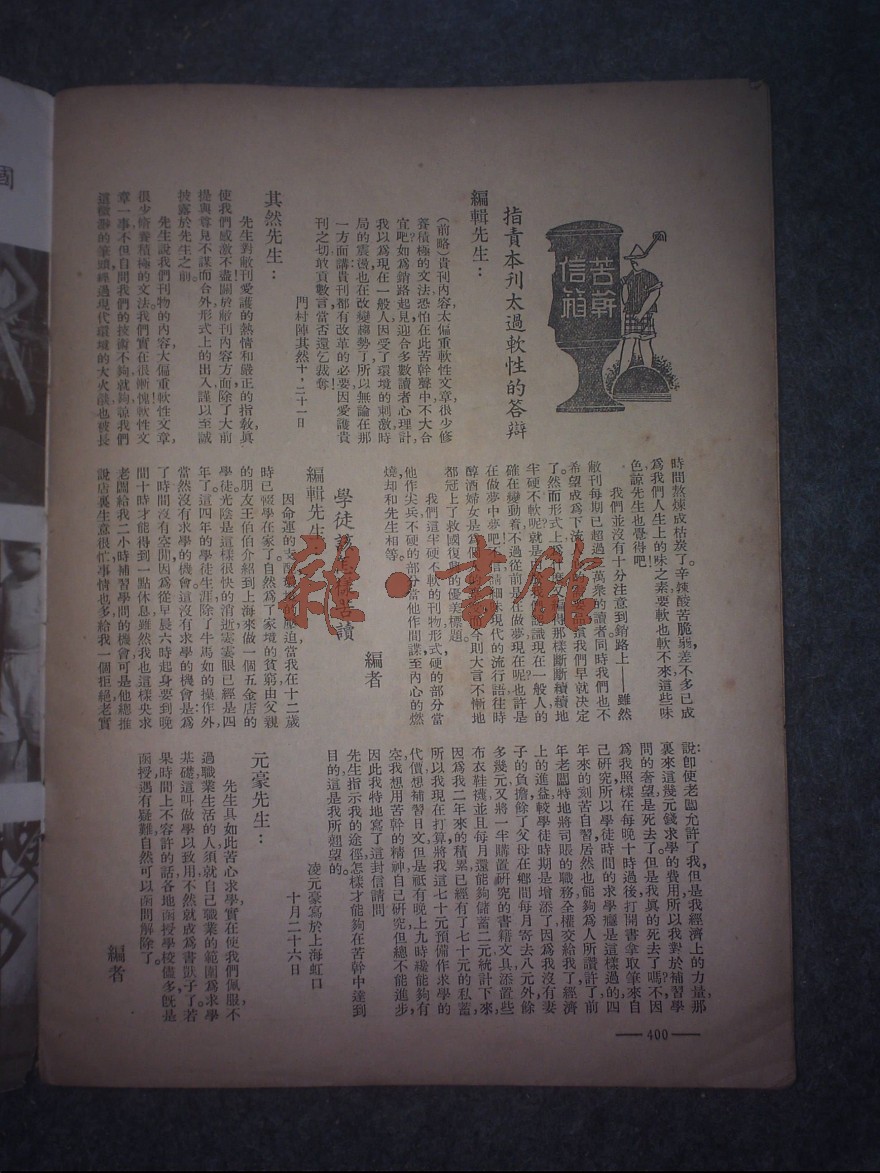 苦幹
信箱
指責本刋太過軟性的答辯
編輯先生：
（前略）貴刋內容，太偏重軟性文章，很少修
養積極的文法，恐怕在此苦幹聲中，不大合
宜吧？如爲銷路起見，迎合多數讀者心理計，
我以爲現在一般人因受了環境的刺激，時
局的震盪，也在改變趨勢了，所以無論在那
一方面講，貴刋都有改革的必要，因愛護貴
刋之切，敢貢數言，當否還乞裁奪！
門村陣其然十，二十一日
其然先生：
先生對敝刋愛護的熱情，和嚴正的指敎，眞
使我們感激不盡，關於敝刋內容方面，除了大前
提與尊見不謀而合外，形式上的出入，謹以至誠
披露於先生之前。
先生說我們刋物的內容，大偏重軟性文章，
很少修養積極的文法，我們實在很慚愧，軟性文
章一事，不但自問我們的技術不夠，就夠，
時間熬煉成枯淡了。辛辣酸苦脆弱，差不多已成
爲我們人生上的味之素，要軟也軟不來，這些味
色，諒先生也覺得吧！
我們並沒有十分注意到銷路上——雖然
敝刋每期已超過
萬衆的讀者，同時我們也不
希望成爲下流
我們早就決定
了。然而形式上爲
那樣斷斷續續地
半硬不軟呢？就是
識現在一般人的
確在變動着，不過從前是在做夢，現在呢？也許是
在做夢中夢吧！
現代的流行語，往時
醇酒婦女是爲
今則大言不慚地
都冠上了救國復興的優美標題。
我們這半硬不軟的刋物，形式硬的部分當
他作尖兵，不硬的部分當他作間諜，至內心的燃
燒，却和先生相等。
編者
學徒該怎樣苦讀
編輯先生
因命運的支配
壓迫，當我在十二歲
時已輟學在家了。自然爲了家境的貧窮，由父親
的朋友王伯伯介紹到上海來做一個五金店的
學徒，光陰是這樣很快的消逝，霎霎眼已經是四
年了。這四年的學徒生涯，除了牛馬如的操作外，
當然沒有求學的機會，這沒有求學的機會是：爲
了時間，沒有空閒，因爲從早晨六時起身，要到晚
間十時才能得到一點休息，雖然我也這樣央求
老闆給我二小時補習學問的機會，可是他總推
說店裏生意很忙，事情也多，給我一個拒絕，老實
說：即使老闆允許了我，但是我經濟上的力量，那
裏來這幾元錢求學的費用，所以我對於補習學
問的奢望是死去了，但是我眞的死去了嗎？不，因
爲我照樣在每晚十時過後，打開書，拿取筆來，自
己硏究，所以學徒時間的求學癮是這樣過的，四
年來的刻苦自習，居然也能夠爲人所讚許了，前
年老闆特地將司賬的職務全權交給我了，經濟
上的進益，較學徒時期是增添了，因爲我沒有妻
子的負擔，除了父母在鄕間每月寄去八元外，餘
多幾元又將一半購置硏究的書籍文具，添置些
布衣鞋襪，並且每月還能夠儲蓄二元，統計下來，
因爲我二年來的積累，已經有了七十元的私蓄，
所以我現在打算將我這七十元預備作求學的
代價，想補習日文，但是祇有晚上九時纔能夠有
空，我想用苦幹的精神自己硏究，但總不能進步，
因此我特地寫了這封信，請問
先生，指示我的途徑，怎樣才能夠在苦幹中達到
目的，這是我所翹望的。
凌元豪寫於上海虹口
十月二十六日
元豪先生：
先生具如此苦心求學，實在使我們佩服，不
過職業生活的人，須就自己職業的範圍爲求學
基礎，這叫做學以致用，不然就成爲書獃子了。若
果時間上不容許的話，各地函授學校儘多，旣是
函授，遇有疑難，自然可以函問解除了。
編者
—400—
雜·書館